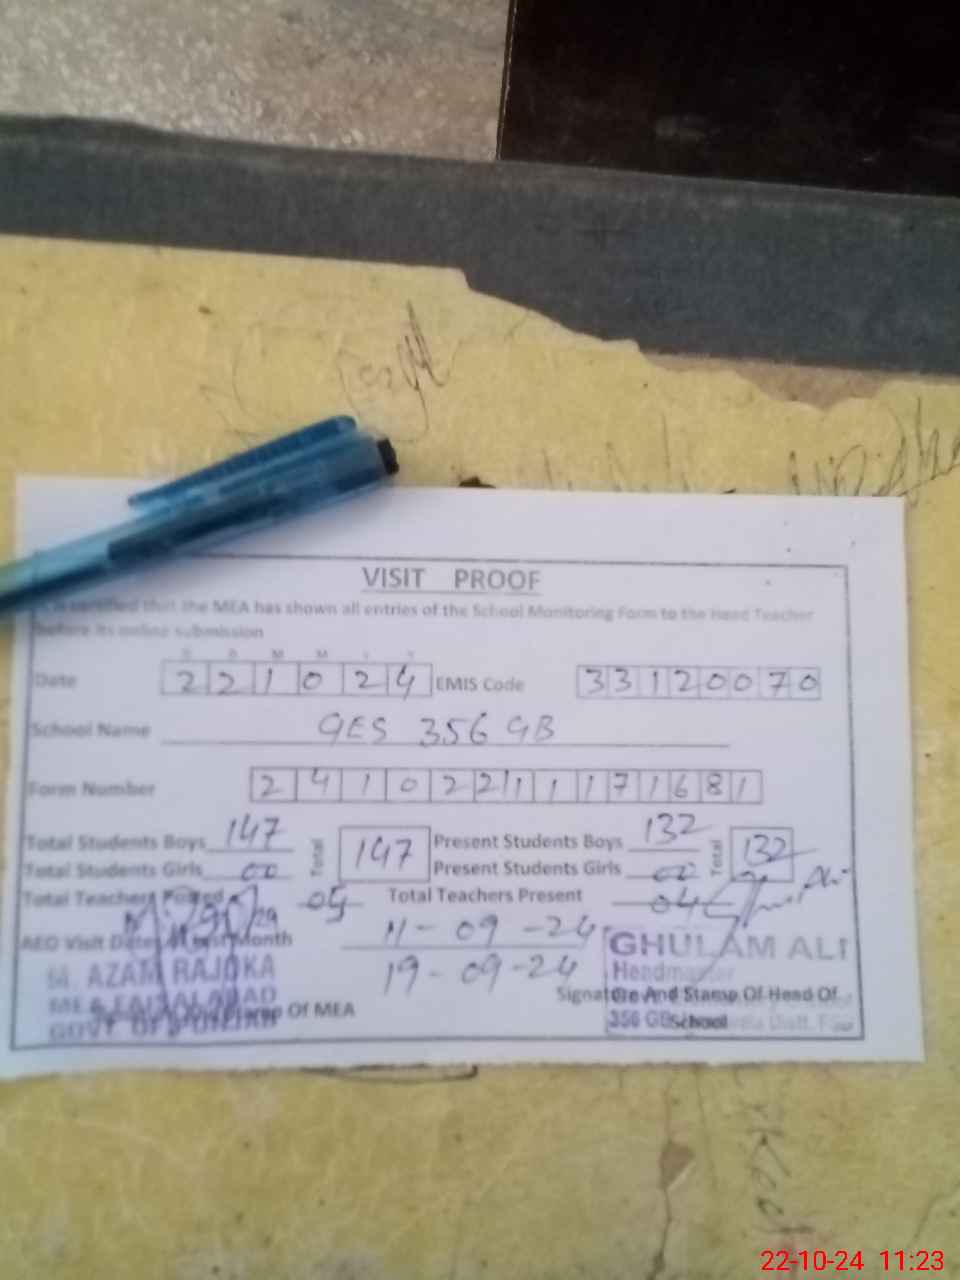 VISIT PROOF
It is certified that the MEA has shown all entries of the School Monitoring Form to the Head Teacher
before its online submission
D D M M Y Y
Date 2 2 1 0 2 4 EMIS Code 3 3 1 2 0 0 7 0
School Name GES 356 GB
Form Number 2 4 1 0 2 2 1 1 1 7 1 6 8 1
Total Students Boys 147 Total 147 Present Students Boys 132 Total 132
Total Students Girls 00 Present Students Girls 00
Total Teachers Posted 05 Total Teachers Present 04
AEO Visit Dates of Last Month 11-09-24
19-09-24
M. AZAM RAJOKA
MEA FAISALABAD
GOVT OF PUNJAB
Stamp Of MEA
GHULAM ALI
Headmaster
Signature And Stamp Of Head Of
356 GB
School
22-10-24 11:23